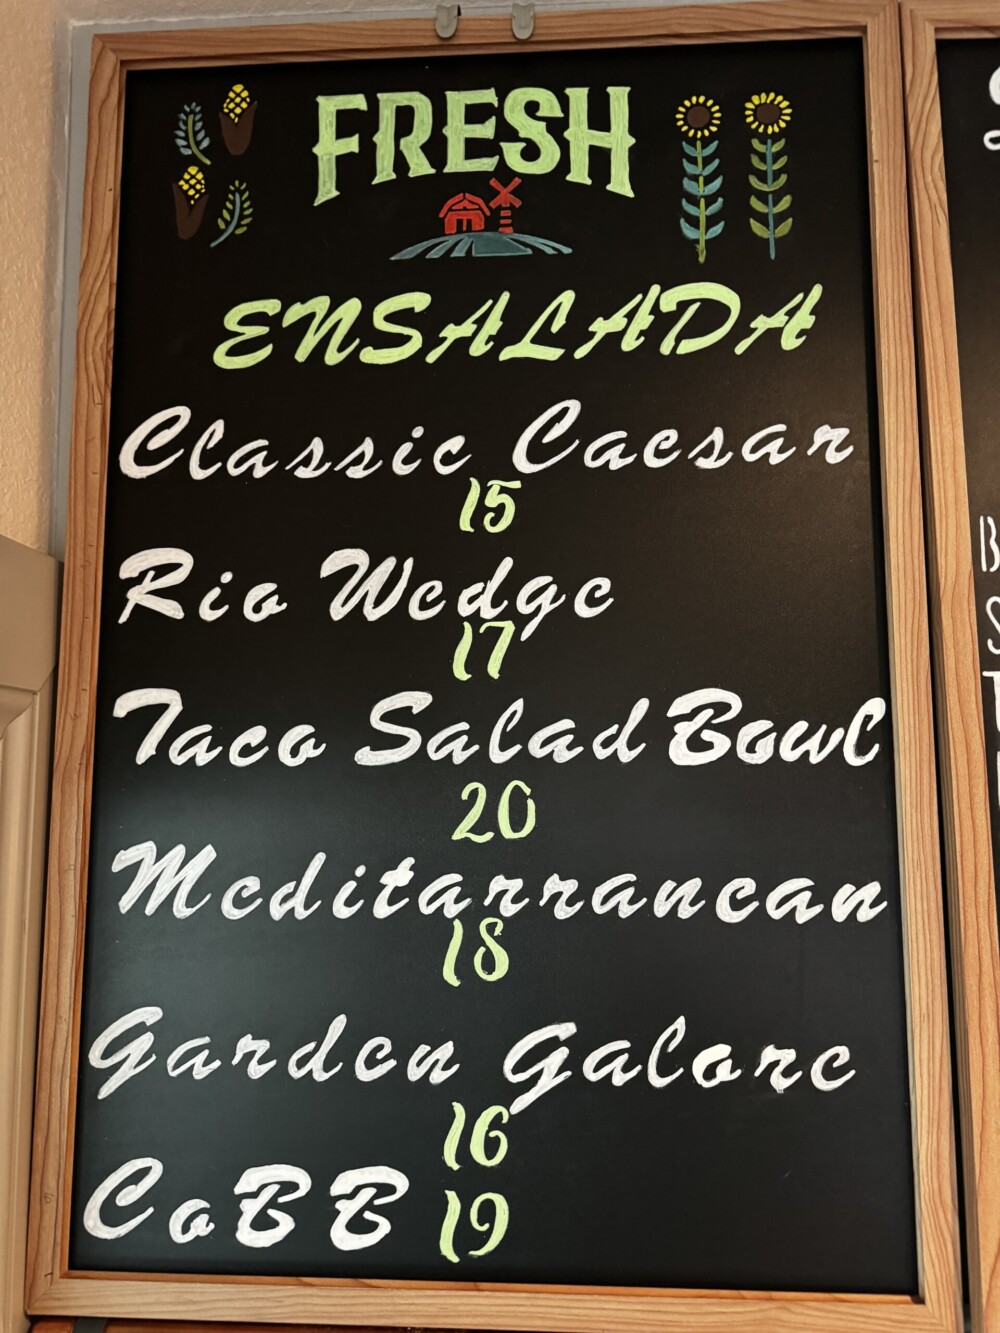 FRESH
ENSALADA
Classic Caesar
15
Rio Wedge
17
Taco Salad Bowl
20
Meditarranean
18
Garden Galore
16
CoBB 19